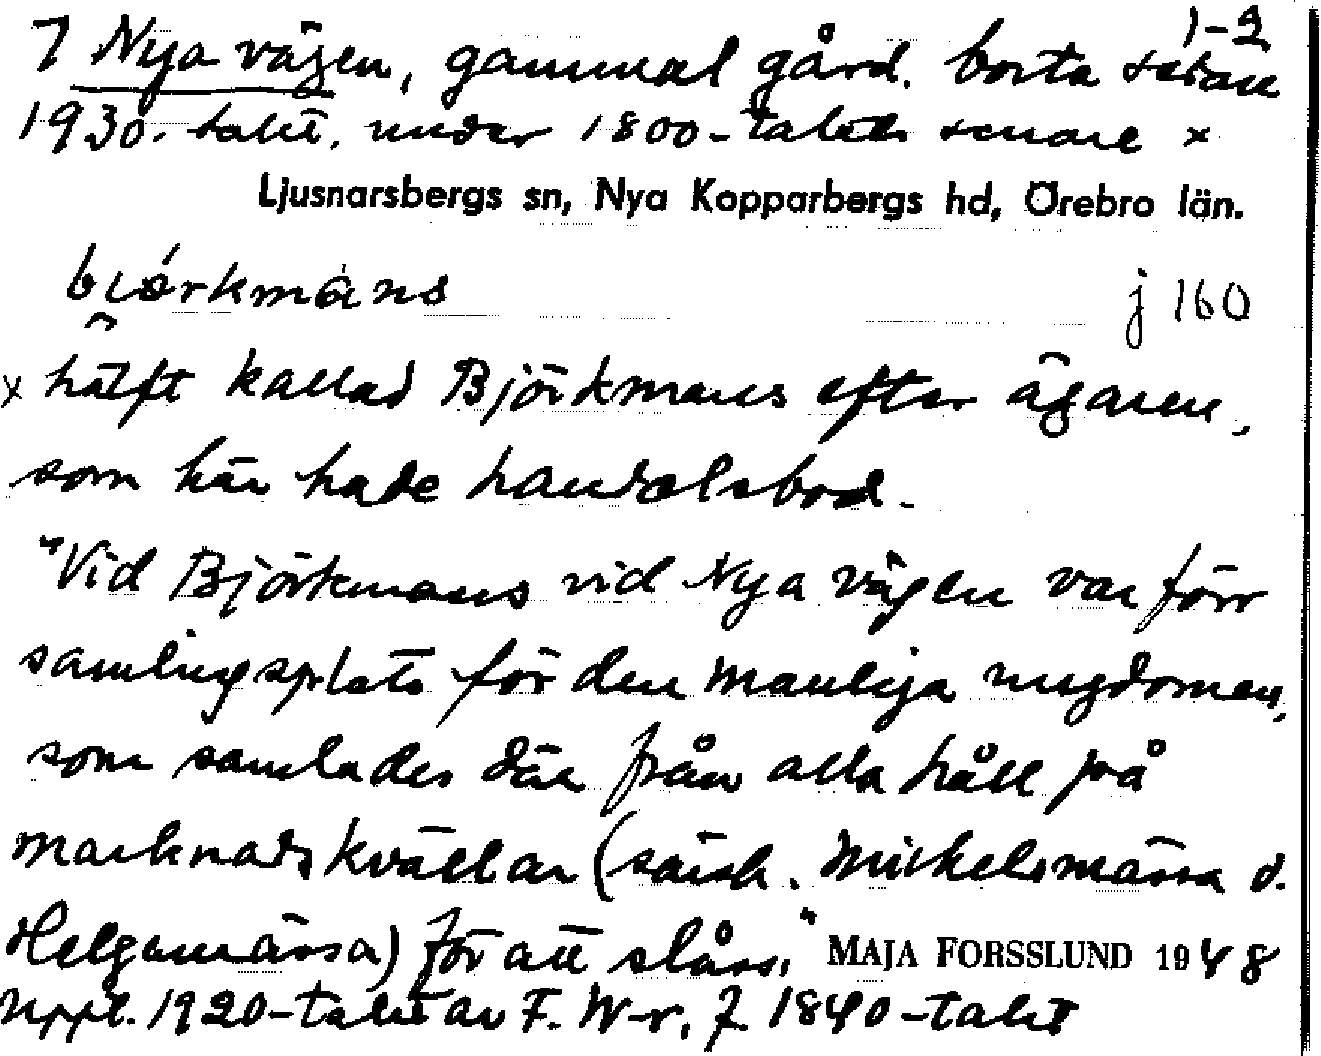 1-2
7 Nya vägen, gammal gård, borta sedan
1930-talet, under 1800-talets senare x
Ljusnarsbergs sn, Nya Kopparbergs hd, Örebro län.
björkmàns j 160
x hälft kallad Björkmans efter ägaren,
som här hade handelsbod.
"Vid Björkmans vid Nya vägen var förr
samlingsplats för den manliga ungdomen,
som samlades där från alla håll på
marknadskvällar (särsk. Mickelsmässa o.
Helgamässa) för att slåss." MAJA FORSSLUND 1948
Uppl. 1920-talet av F. W-r, f. 1840-talet